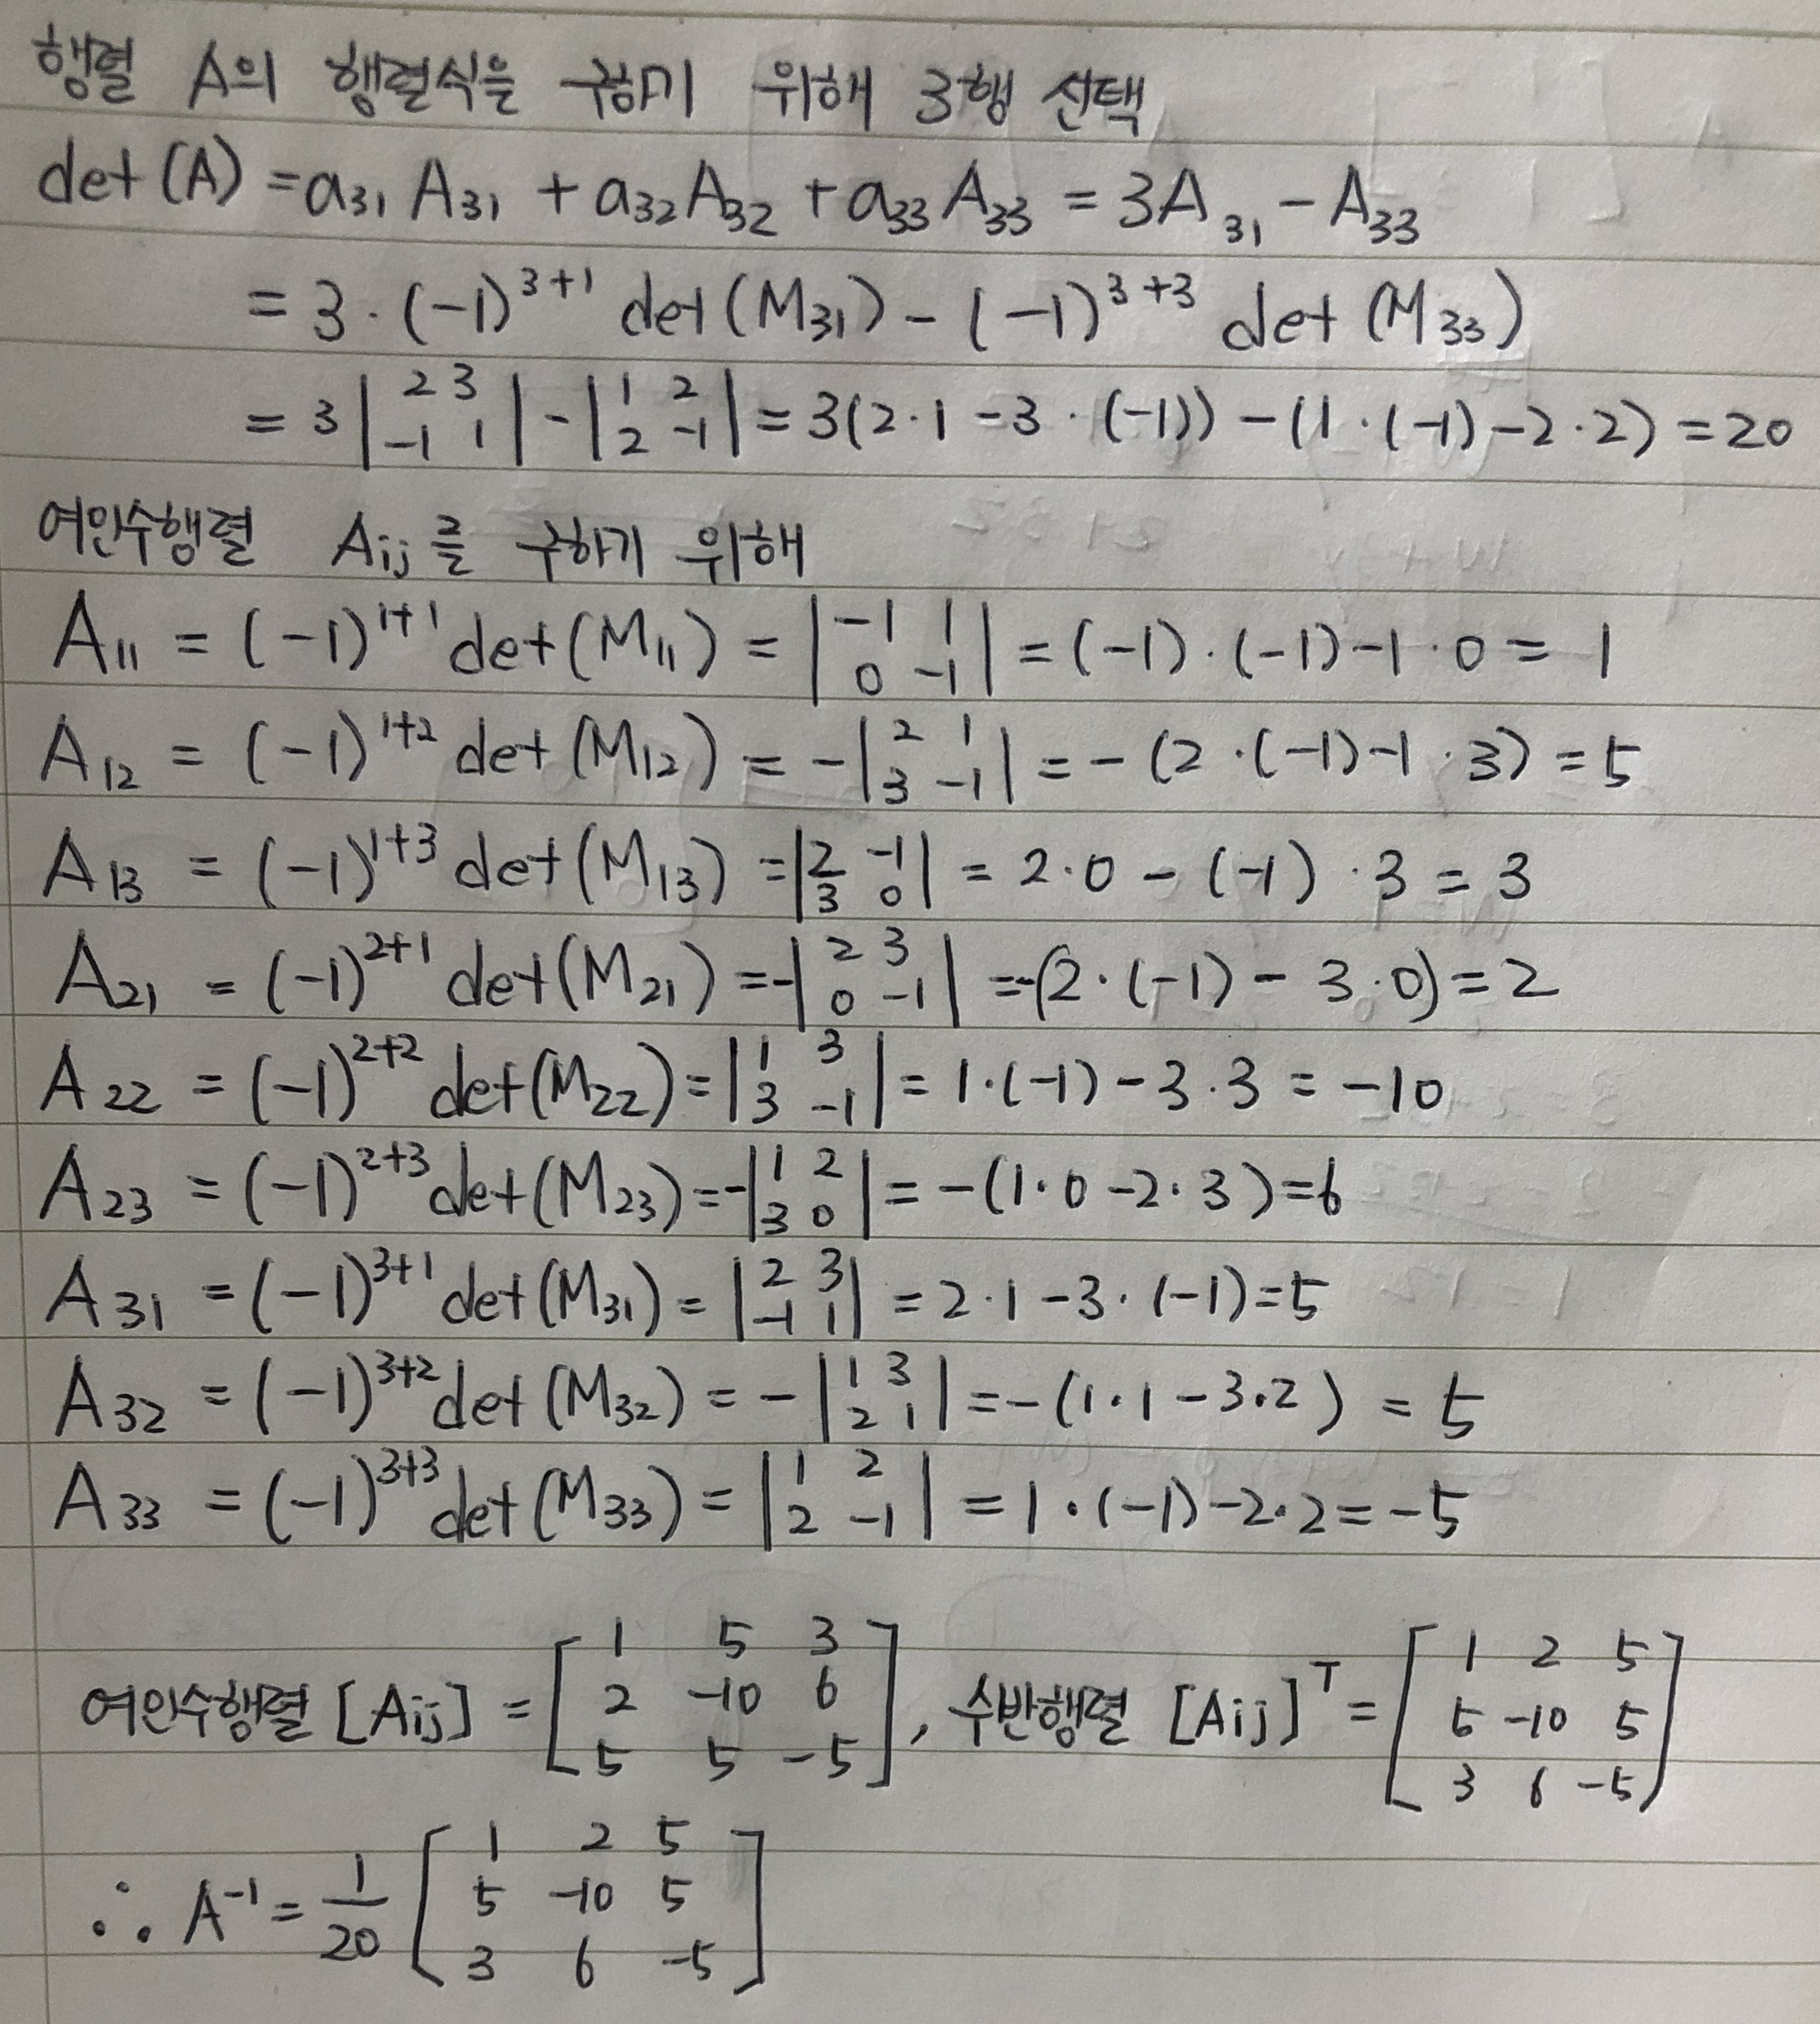 행렬 A의 행렬식을 구하기 위해 3행 선택
det (A) = a₃₁ A₃₁ + a₃₂ A₃₂ + a₃₃ A₃₃ = 3A₃₁ - A₃₃
= 3 · (-1)³⁺¹ det (M₃₁) - (-1)³⁺³ det (M₃₃)
= 3 | 2 3 ; -1 1 | - | 1 2 ; 2 -1 | = 3(2·1 - 3 · (-1)) - (1 · (-1) - 2 · 2) = 20
여인수행렬 Aij를 구하기 위해
A₁₁ = (-1)¹⁺¹ det (M₁₁) = | -1 1 ; 0 -1 | = (-1) · (-1) - 1 · 0 = 1
A₁₂ = (-1)¹⁺² det (M₁₂) = - | 2 1 ; 3 -1 | = - (2 · (-1) - 1 · 3) = 5
A₁₃ = (-1)¹⁺³ det (M₁₃) = | 2 -1 ; 3 0 | = 2·0 - (-1) · 3 = 3
A₂₁ = (-1)²⁺¹ det (M₂₁) = - | 2 3 ; 0 -1 | = -(2 · (-1) - 3·0) = 2
A₂₂ = (-1)²⁺² det (M₂₂) = | 1 3 ; 3 -1 | = 1·(-1) - 3·3 = -10
A₂₃ = (-1)²⁺³ det (M₂₃) = - | 1 2 ; 3 0 | = - (1·0 - 2·3) = 6
A₃₁ = (-1)³⁺¹ det (M₃₁) = | 2 3 ; -1 1 | = 2·1 - 3· (-1) = 5
A₃₂ = (-1)³⁺² det (M₃₂) = - | 1 3 ; 2 1 | = - (1·1 - 3·2) = 5
A₃₃ = (-1)³⁺³ det (M₃₃) = | 1 2 ; 2 -1 | = 1·(-1) - 2·2 = -5
여인수행렬 [Aij] = [ 1 5 3 ; 2 -10 6 ; 5 5 -5 ], 수반행렬 [Aij]ᵀ = [ 1 2 5 ; 5 -10 5 ; 3 6 -5 ]
∴ A⁻¹ = 1/20 [ 1 2 5 ; 5 -10 5 ; 3 6 -5 ]